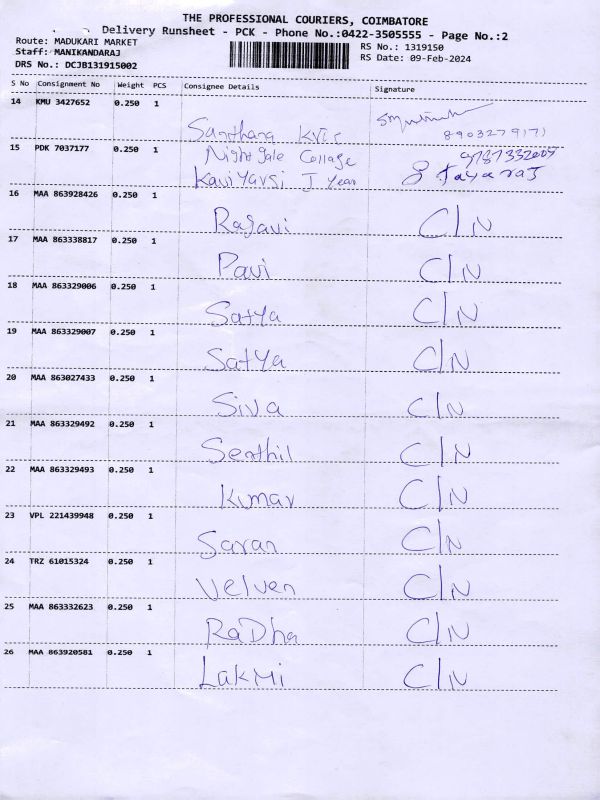 THE PROFESSIONAL COURIERS, COIMBATORE
Delivery Runsheet - PCK - Phone No.:0422-3505555 - Page No.:2
Route: MADUKARI MARKET
Staff: MANIKANDARAJ
DRS No.: DCJB131915002
RS No.: 1319150
RS Date: 09-Feb-2024
S No Consignment No Weight PCS Consignee Details Signature
14 KMU 3427652 0.250 1
Santhana
8903279171
15 PDK 7037177 0.250 1 Nightgale Collage
Kaviyarsi I Year
9787332007
Jayaraj
16 MAA 863928426 0.250 1 Rajavi C/N
17 MAA 863338817 0.250 1 Pavi C/N
18 MAA 863329006 0.250 1 Satya C/N
19 MAA 863329007 0.250 1 Satya C/N
20 MAA 863027433 0.250 1 Siva C/N
21 MAA 863329492 0.250 1 Senthil C/N
22 MAA 863329493 0.250 1 Kumar C/N
23 VPL 221439948 0.250 1 Saran C/N
24 TRZ 61015324 0.250 1 Velven C/N
25 MAA 863332623 0.250 1 RaDha C/N
26 MAA 863920581 0.250 1 Lakmi C/N